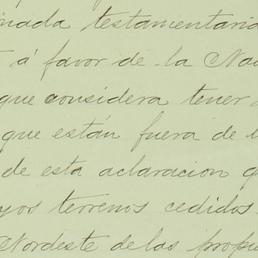 inada testamentaria
á favor de la Na
que considera tener
que están fuera de
de esta aclaracion q
yos terrenos cedidos
Nordeste de las propie